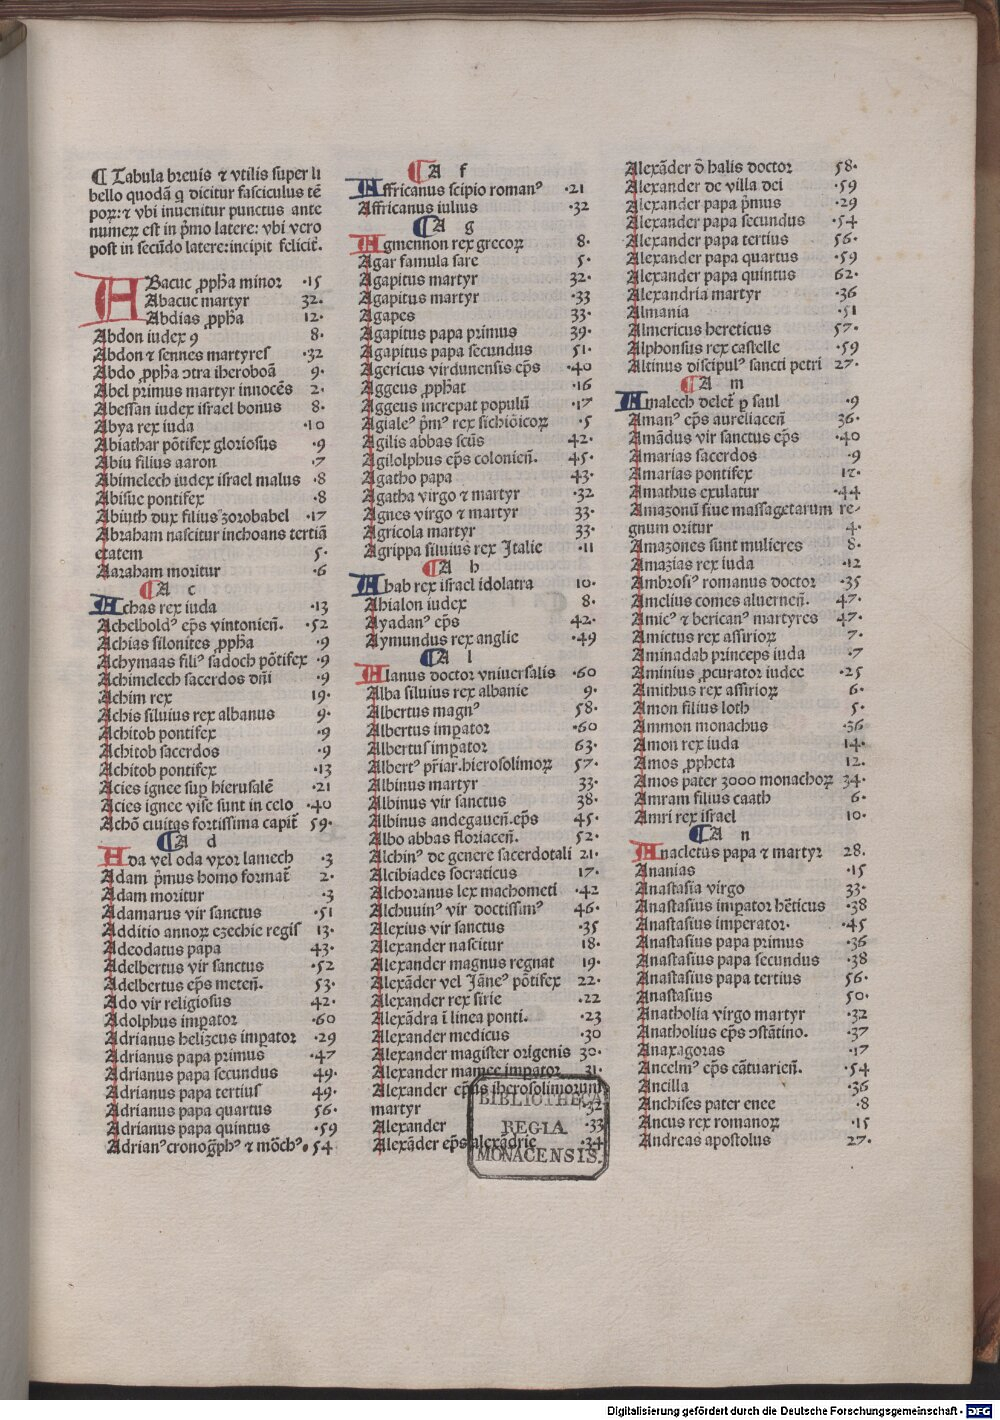 ¶ Tabula breuis ⁊ vtilis super li
bello quodã q̃ dicitur fasciculus tẽ
poꝝ: ⁊ vbi inuenitur punctus ante
numeꝝ est in p̃mo latere: vbi vero
post in secũdo latere: incipit felicit̃.
ABacuc ꝓpħa minor ·15
Abacuc martyr 32·
Abdias ꝓpħa 12·
Abdon iudex 9 8·
Abdon ⁊ sennes martyres ·32
Abdo ꝓpħa ↄtra iheroboã 9·
Abel primus martyr innocẽs 2·
Abessan iudex israel bonus 8·
Abya rex iuda ·10
Abiathar põtifex gloriosus ·9
Abiu filius aaron ·7
Abimelech iudex israel malus ·8
Abisue pontifex ·8
Abiuth dux filius zorobabel ·17
Abraham nascitur inchoans tertiã
etatem 5·
Aaraham moritur ·6
¶ A c
Achas rex iuda ·13
Achelboldꝰ ep̃s vintonieñ. ·52
Achias silonites ꝓpħa ·9
Achymaas filiꝰ sadoch põtifex ·9
Achimelech sacerdos dñi ·9
Achim rex 19·
Achis siluius rex albanus 9·
Achitob pontifex ·9
Achitob sacerdos ·9
Achitob pontifex ·13
Acies ignee suꝑ hierusalẽ ·21
Acies ignee vise sunt in celo ·40
Achõ ciuitas fortissima capit̃ 59·
¶ A d
Ada vel oda vxor lamech ·3
Adam p̃mus homo format̃ 2·
Adam moritur ·3
Adamarus vir sanctus ·51
Additio annoꝝ ezechie regis 13·
Adeodatus papa 43·
Adelbertus vir sanctus ·52
Adelbertus ep̃s meteñ. 53·
Ado vir religiosus 42·
Adolphus imꝑator ·60
Adrianus helizeus imꝑator ·29
Adrianus papa primus ·47
Adrianus papa secundus 49·
Adrianus papa tertius 49·
Adrianus papa quartus 56·
Adrianus papa quintus ·59
Adrianꝰ cronog̃phꝰ ⁊ mõchꝰ ·54
¶ A f
Affricanus scipio romanꝰ ·21
Affricanus iulius ·32
¶ A g
Agmennon rex grecoꝝ 8·
Agar famula sare 5·
Agapitus martyr 32·
Agapitus martyr ·33
Agapes 33·
Agapitus papa primus 39·
Agapitus papa secundus 51·
Agericus virdunensis ep̃s ·40
Aggeus ꝓpħat ·16
Aggeus increpat populũ ·17
Agialeꝰ p̃mꝰ rex sichiõicoꝝ ·5
Agilis abbas scũs 42·
Agilolphus ep̃s colonieñ. 45·
Agatho papa 43·
Agatha virgo ⁊ martyr ·32
Agnes virgo ⁊ martyr 33·
Agricola martyr 33·
Agrippa siluius rex Italie ·11
¶ A h
Ahab rex israel idolatra 10·
Ahialon iudex 8·
Ayadanꝰ ep̃s 42·
Aymundus rex anglie ·49
¶ A l
Alanus doctor vniuersalis ·60
Alba siluius rex albanie 9·
Albertus magnꝰ 58·
Albertus imꝑator ·60
Albertus imꝑator 63·
Albertꝰ pr̃iar. hierosolimoꝝ 57·
Albinus martyr 33·
Albinus vir sanctus 38·
Albinus andegaueñ. ep̃s 45·
Albo abbas floriaceñ. 52·
Alchinꝰ de genere sacerdotali 21·
Alcibiades socraticus 17·
Alchoranus lex machometi ·42
Alchuuinꝰ vir doctissimꝰ 46·
Alexius vir sanctus ·35
Alexander nascitur 18·
Alexander magnus regnat 19·
Alexãder vel Jãneꝰ põtifex 22·
Alexander rex sirie ·22
Alexãdra ĩ linea ponti. ·23
Alexander medicus ·30
Alexander magister origenis 30·
Alexander mamee imꝑator 31·
Alexander ep̃us iherosolimorum
martyr ·32
Alexander ·33
Alexãder ep̃s alexãdrie ·34
Alexãder d̃ halis doctor 58·
Alexander de villa dei ·59
Alexander papa p̃mus ·29
Alexander papa secundus ·54
Alexander papa tertius 56·
Alexander papa quartus ·59
Alexander papa quintus 62·
Alexandria martyr ·36
Almania ·51
Almericus hereticus 57·
Alphonsus rex castelle ·59
Altinus discipulꝰ sancti petri 27·
¶ A m
Amalech delet̃ ꝑ saul ·9
Amanꝰ ep̃s aureliaceñ 36·
Amãdus vir sanctus ep̃s ·40
Amarias sacerdos ·9
Amarias pontifex 12·
Amathus exulatur ·44
Amazonũ siue massagetarum re-
gnum oritur 4·
Amazones sunt mulieres 8·
Amazias rex iuda ·12
Ambrosiꝰ romanus doctor ·35
Amelius comes aluerneñ. 47·
Amicꝰ ⁊ bericanꝰ martyres 47·
Amictus rex assirioꝝ 7·
Aminadab princeps iuda ·7
Aminius ꝓcurator iudee ·25
Amithus rex assirioꝝ 6·
Amon filius loth 5·
Ammon monachus ·36
Amon rex iuda 14·
Amos ꝓpheta 12·
Amos pater 3000 monachoꝝ 34·
Amram filius caath 6·
Amri rex israel 10·
¶ A n
Anacletus papa ⁊ martyr 28·
Ananias ·15
Anastasia virgo 33·
Anastasius imꝑator hẽticus ·38
Anastasius imperator· ·45
Anastasius papa primus ·36
Anastasius papa secundus ·38
Anastasius papa tertius 56·
Anastasius 50·
Anatholia virgo martyr ·32
Anatholius ep̃s ↄstãtino. ·37
Anaxagoras ·17
Ancelmꝰ ep̃s cãtuarieñ. ·54
Ancilla ·36
Anchises pater enee ·8
Ancus rex romanoꝝ ·15
Andreas apostolus 27·
BIBLIOTHECA
REGIA
MONACENSIS.
Digitalisierung gefördert durch die Deutsche Forschungsgemeinschaft - DFG